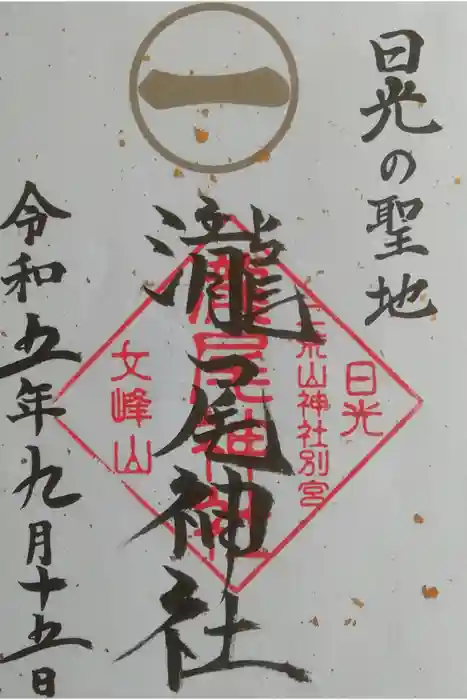 日光の聖地
一
瀧尾神社
日光
二荒山神社別宮
瀧尾神社
女峰山
令和五年九月十五日